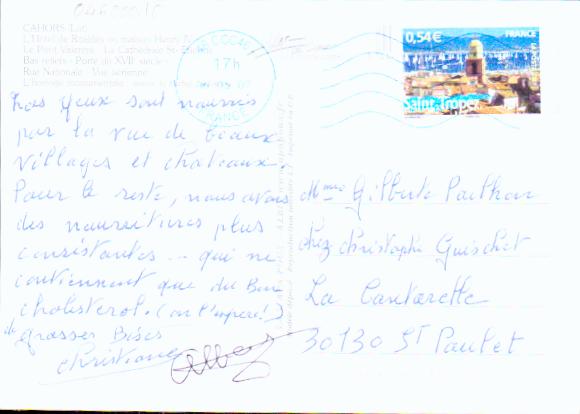 CAHORS (Lot)
L'Hôtel de Roaldès ou maison Henri
Le Pont Valentré - La Cathédrale St-Etienne
Bas reliefs - Porte du XVIIe siècle
Rue Nationale - Vue aérienne
L'horloge monumentale
17h
FRANCE
0,54€ FRANCE
Saint-Tropez
nos yeux sont nourris
par la vue de beaux
villages et chateaux.
Pour le reste, nous avons
des nourritures plus
consistantes... qui ne
contiennent que du Bon
cholesterol. (on l'espere!)
de grosses Bises
christiane
Mme Gilberte Pailhon
chez christophe Guischet
La Cantarelle
30130 St Paulet